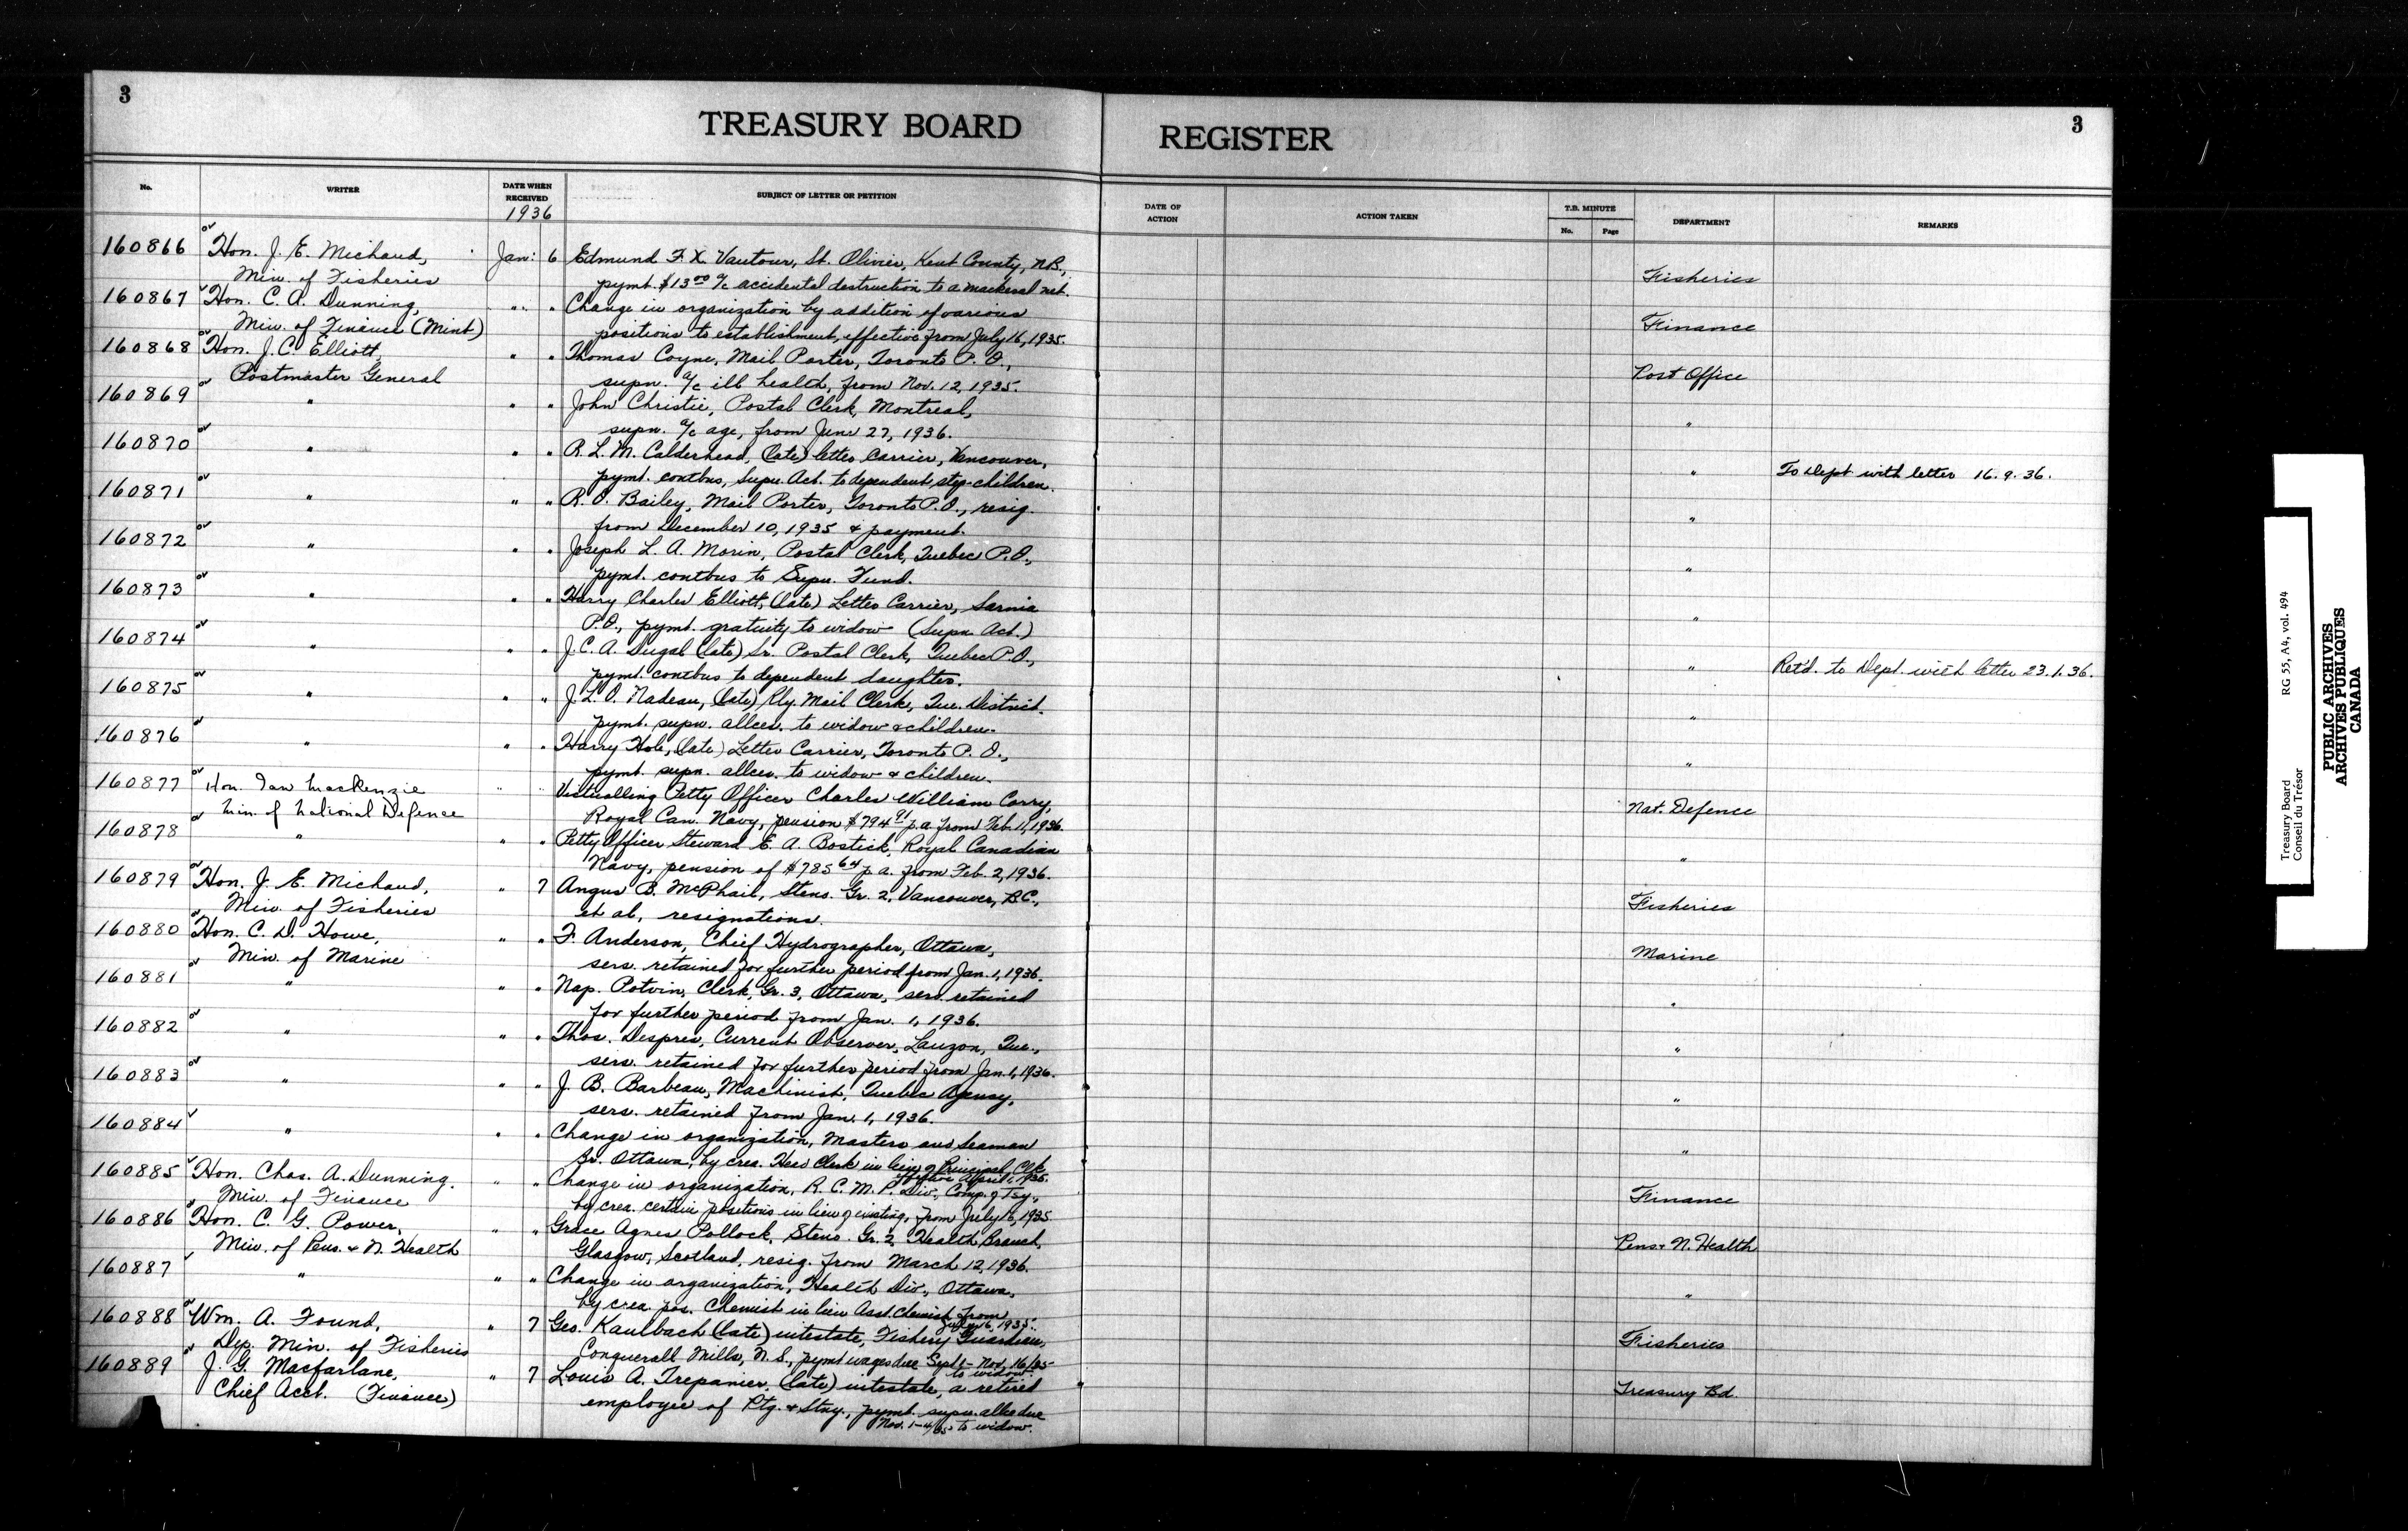 3
3
TREASURY BOARD
REGISTER
No.
WRITER
DATE WHEN RECEIVED
1936
SUBJECT OF LETTER OR PETITION
DATE OF ACTION
ACTION TAKEN
T.B. MINUTE
No.
Page
DEPARTMENT
REMARKS
160866 Hon. J. E. Michaud, Jan: 6 Edmund F. X. Vautour, St. Olivier, Kent County, N.B.,
Min. of Fisheries pymt. $13.00 a/c accidental destruction to a mackeral net. Fisheries
160867 Hon. C. A. Dunning, " " Change in organization by addition of various
Min. of Finance (Mint) positions to establishment, effective from July 16, 1935. Finance
160868 Hon. J. C. Elliott, " " Thomas Coyne, Mail Porter, Toronto P. O.,
Postmaster General supn. a/c ill health, from Nov. 12, 1935. Post Office
160869 " " " John Christie, Postal Clerk, Montreal,
supn. a/c age, from June 27, 1936. "
160870 " " " R. L. M. Calderhead, (late) letter Carrier, Vancouver,
pymt. contbns, Supn. Act. to dependent step-children. " To Dept with letter 16.9.36.
160871 " " " R. O. Bailey, Mail Porter, Toronto P.O., resig.
from December 10, 1935 & payment. "
160872 " " " Joseph L. A. Morin, Postal Clerk, Quebec P.O.,
pymt. contbns to Supn. Fund. "
160873 " " " Harry Charles Elliott, (late) Letter Carrier, Sarnia
P.O., pymt. gratuity to widow (Supn. Act.) "
160874 " " " J. C. A. Dugal (late) Sr. Postal Clerk, Quebec P.O.,
pymt. contbns to dependent daughter. " Ret'd. to Dept. with letter 23.1.36.
160875 " " " J. L. O. Nadeau, (late) Rly. Mail Clerk, Que. District.
pymt. supn. allce. to widow & children. "
160876 " " " Harry Hole, (late) Letter Carrier, Toronto P. O.,
pymt. supn. allce. to widow & children. "
160877 Hon. Ian Mackenzie " " Victualling Petty Officer Charles William Corry,
Min. of National Defence Royal Can. Navy, pension $794.91 p.a. from Feb. 11, 1936. Nat. Defence
160878 " " " Petty Officer Steward E. A. Bostick, Royal Canadian
Navy, pension of $785.64 p.a. from Feb. 2, 1936. "
160879 Hon. J. E. Michaud, " 7 Angus B. McPhail, Steno. Gr. 2, Vancouver, B.C.,
Min. of Fisheries et al, resignations. Fisheries
160880 Hon. C. D. Howe, " " F. Anderson, Chief Hydrographer, Ottawa,
Min. of Marine servs. retained for further period from Jan. 1, 1936. Marine
160881 " " " Nap. Potvin, Clerk, Gr. 3, Ottawa, servs. retained
for further period from Jan. 1, 1936. "
160882 " " " Thos. Despres, Current Observer, Lauzon, Que.,
servs. retained for further period from Jan. 1, 1936. "
160883 " " " J. B. Barbeau, Machinist, Quebec Agency,
servs. retained from Jan. 1, 1936. "
160884 " " " Change in organization, Masters and Seaman
Br. Ottawa, by crea. Head Clerk in lieu of Principal Clk.
effective April 1, 1935. "
160885 Hon. Chas. A. Dunning. " " Change in organization, R. C. M. P. Div., Comp. of Tsy.,
Min. of Finance by crea. certain positions in lieu of existing, from July 16, 1935 Finance
160886 Hon. C. G. Power, " " Grace Agnes Pollock, Steno. Gr. 2, Health Branch,
Min. of Pens. & N. Health Glasgow, Scotland, resig. from March 12, 1936. Pens. & N. Health
160887 " " " Change in organization, Health Div., Ottawa,
by crea. pos. Chemist in lieu Asst. Chemist, from
July 16, 1935. "
160888 Wm. A. Found, " 7 Geo. Kaulbach (late) intestate, Fishery Guardian,
Dep. Min. of Fisheries Conquerall Mills, N. S., pymt wages due Sept 1 - Nov. 16/35
to widow. Fisheries
160889 J. G. Macfarlane, " 7 Louis A. Trepanier, (late) intestate, a retired
Chief Acct. (Finance) employee of Ptg. & Stny., pymt. supn. allce due
Nov. 1-4/35 to widow. Treasury Bd.
Treasury Board RG 55, A4, vol. 494
Conseil du Trésor
PUBLIC ARCHIVES
ARCHIVES PUBLIQUES
CANADA